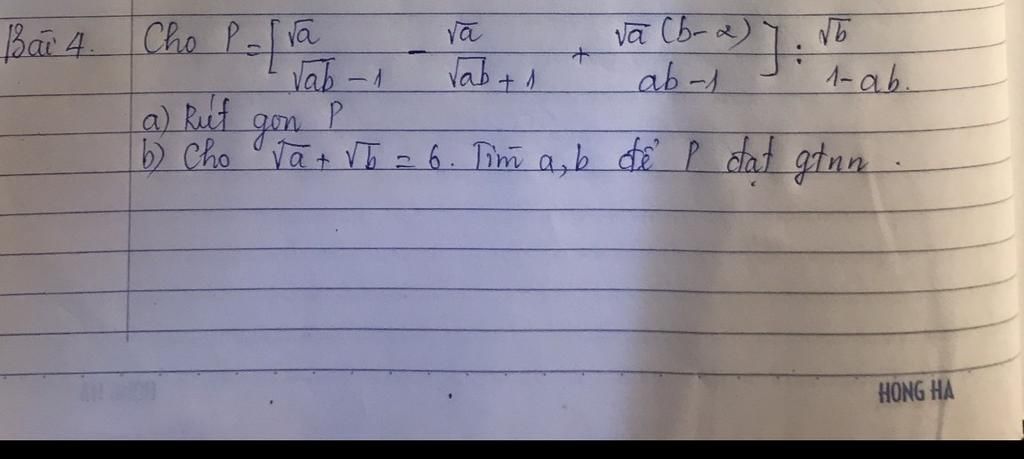 Bài 4. Cho P = [ √a / (√ab − 1) − √a / (√ab + 1) + √a (b − 2) / (ab − 1) ] : √b / (1 − ab).
a) Rút gọn P
b) Cho √a + √b = 6. Tìm a, b để P đạt gtnn.
HONG HA